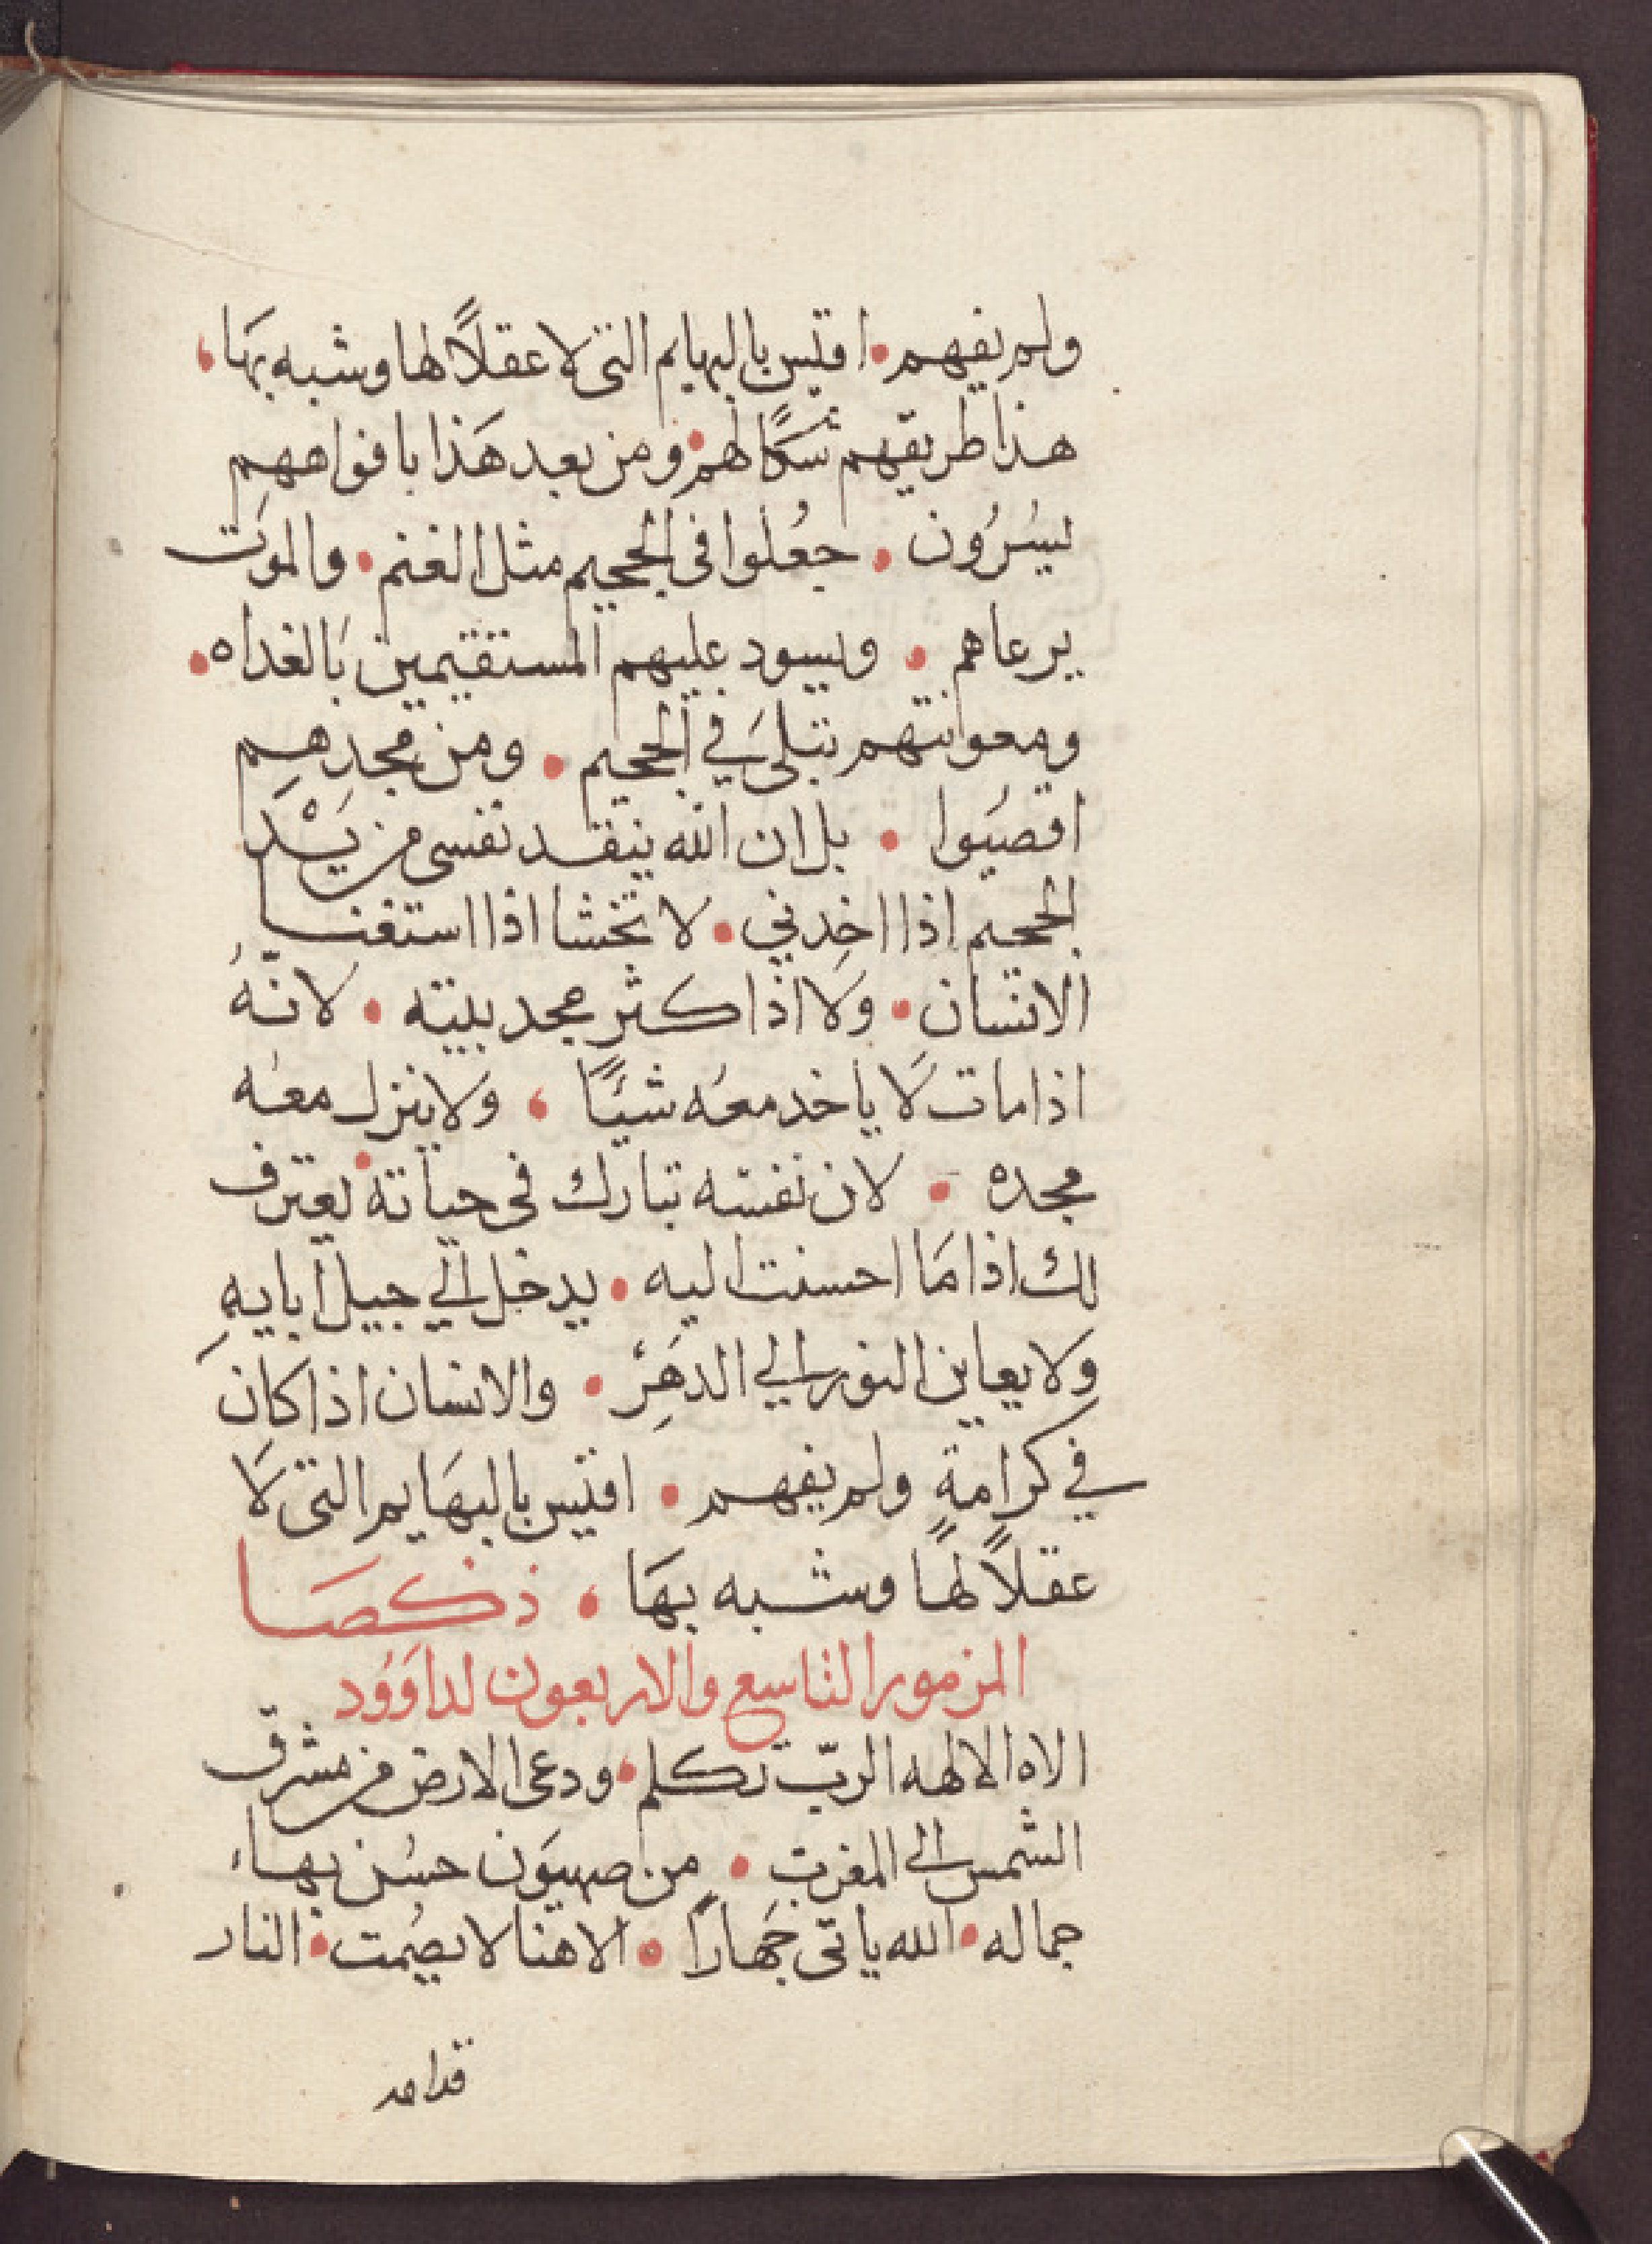 ولم يفهم • اقيس بالبهايم التى لا عقلاً لها وشبه بهَا
هذا طريقهم شكًا لهم • ومن بعد هَذا بافواههم
يسُرُون • جعُلوا فى الجحيم مثل الغنم • والموَت
يرعاهم • ويسود عليهم المستقيمين بَالغداه •
ومعوانتهم تبلىَ في الجحيم • ومن مجدِهم
اقصيَوا • بل ان الله ينقد نفسى من يَدْ
الجحيم اذا اخِدني • لا تخشا اذا استغنا
الانسان • وَلا اذا كثر مجد بيته • لانّهُ
اذا مات لَا ياخد معُه شيًا • وَلا ينزل معُه
مجده • لان نفسه تبارك فى حياته • يعترف
لك اذا مَا احسنت اليه • يدخل الي جيل ابايهِ
وَلا يعاين النور الي الدهِرْ • والانسان اذا كانَ
في كرامةٍ ولم يفهم • اقيس بالبهَايم التى لَا
عقلاً لهَا وشبه بهَا • ذكصَا
المزمور التاسع والاربعون لداوَوُد
الاه الالهه الربّ تكلم • ودعى الارض من مشرق
الشمس الى المغرب • من صهيَون حسُن بهاء
جماله • الله ياتى جَهارًا • الاهنا لا يصُمت • النار
قدامه